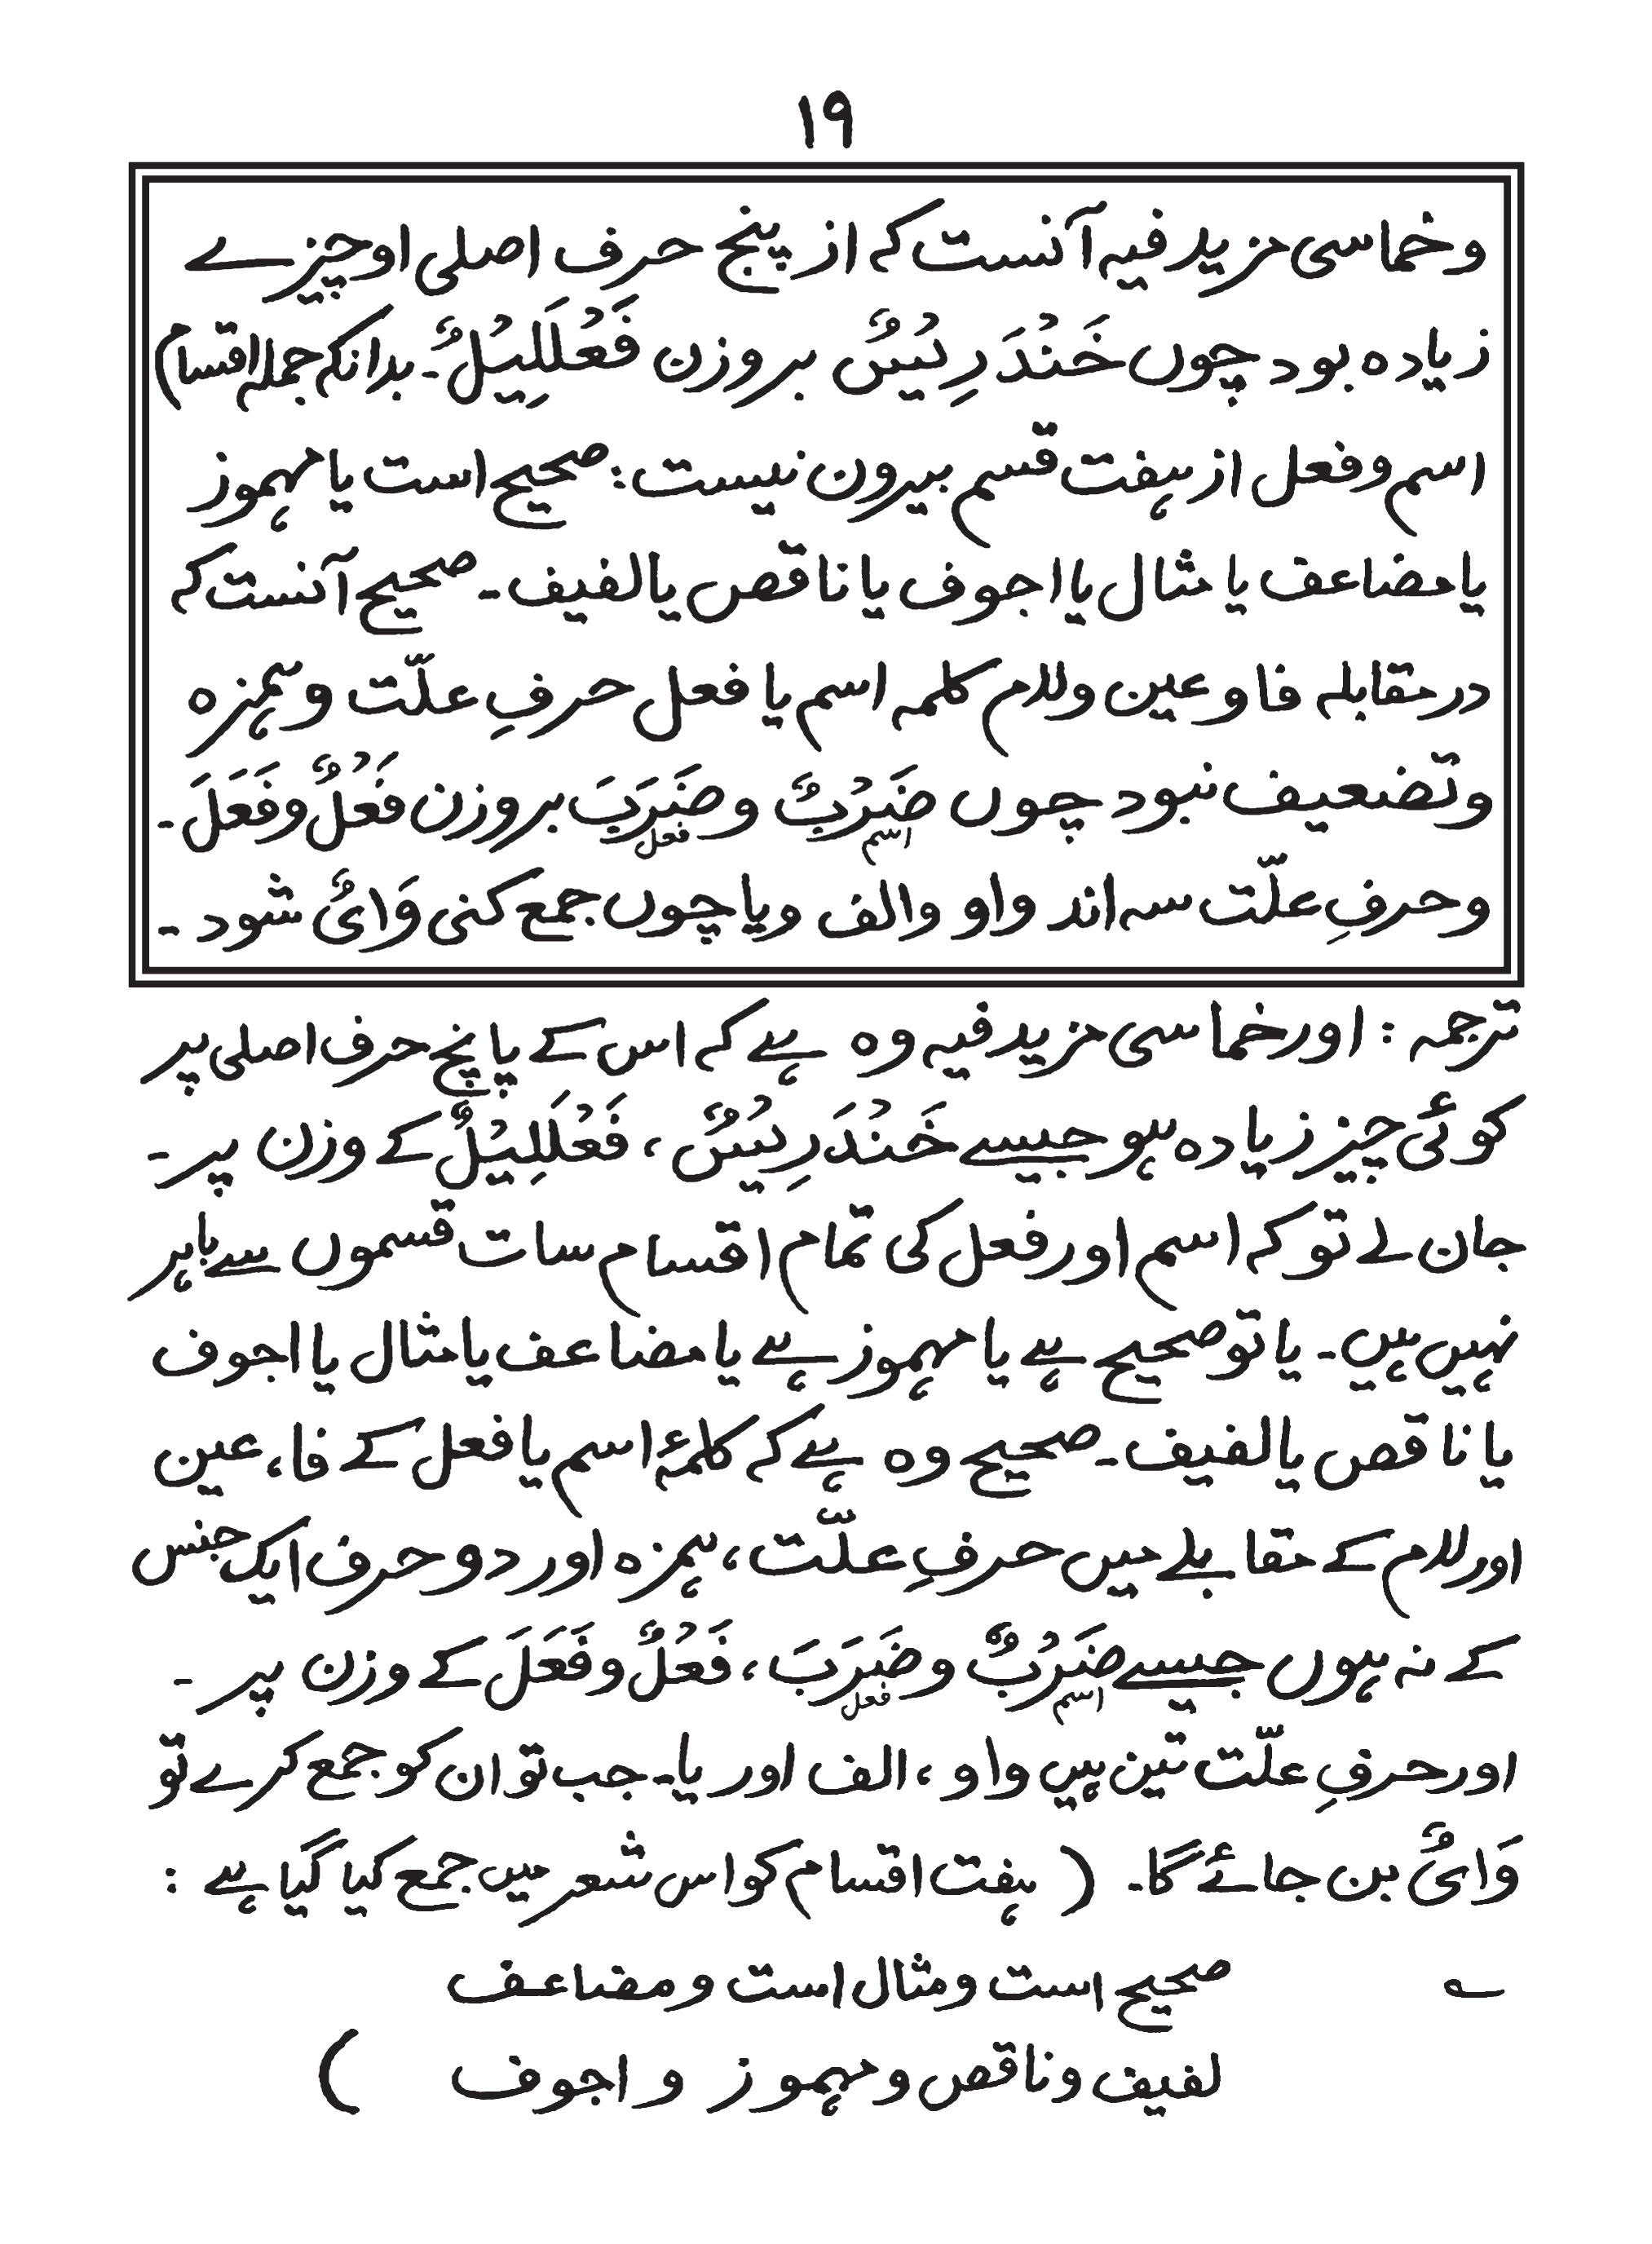 ۱۹
و خماسی مزید فیہ آنست کہ از پنج حرف اصلی او چیزے
زیادہ بود چوں خَنْدَرِیْسٌ بروزن فَعْلَلِیْلٌ۔ بدانکہ جملہ اقسام
اسم و فعل از ہفت قسم بیرون نیست : صحیح است یا مہموز
یا مضاعف یا مثال یا اجوف یا ناقص یا لفیف۔ صحیح آنست کہ
در مقابلہ فا و عین و لام کلمہ اسم یا فعل حرفِ علّت و ہمزہ
و تضعیف نبود چوں ضَرْبٌ و ضَرَبَ بروزن فَعْلٌ و فَعَلَ۔
اسم فعل
و حرفِ علّت سہ اند واو و الف و یا چوں جمع کنی وَایٌ شود۔
ترجمہ : اور خماسی مزید فیہ وہ ہے کہ اس کے پانچ حرف اصلی پر
کوئی چیز زیادہ ہو جیسے خَنْدَرِیْسٌ ، فَعْلَلِیْلٌ کے وزن پر۔
جان لے تو کہ اسم اور فعل کی تمام اقسام سات قسموں سے باہر
نہیں ہیں۔ یا تو صحیح ہے یا مہموز ہے یا مضاعف یا مثال یا اجوف
یا ناقص یا لفیف۔ صحیح وہ ہے کہ کلمۂ اسم یا فعل کے فا، عین
اور لام کے مقابلے میں حرفِ علّت، ہمزہ اور دو حرف ایک جنس
کے نہ ہوں جیسے ضَرْبٌ و ضَرَبَ ، فَعْلٌ و فَعَلَ کے وزن پر۔
اسم فعل
اور حرفِ علّت تین ہیں واو ، الف اور یا۔ جب تو ان کو جمع کرے تو
وَایٌ بن جائے گا۔ ( ہفت اقسام کو اس شعر میں جمع کیا گیا ہے :
؎ صحیح است و مثال است و مضاعف
لفیف و ناقص و مہموز و اجوف )